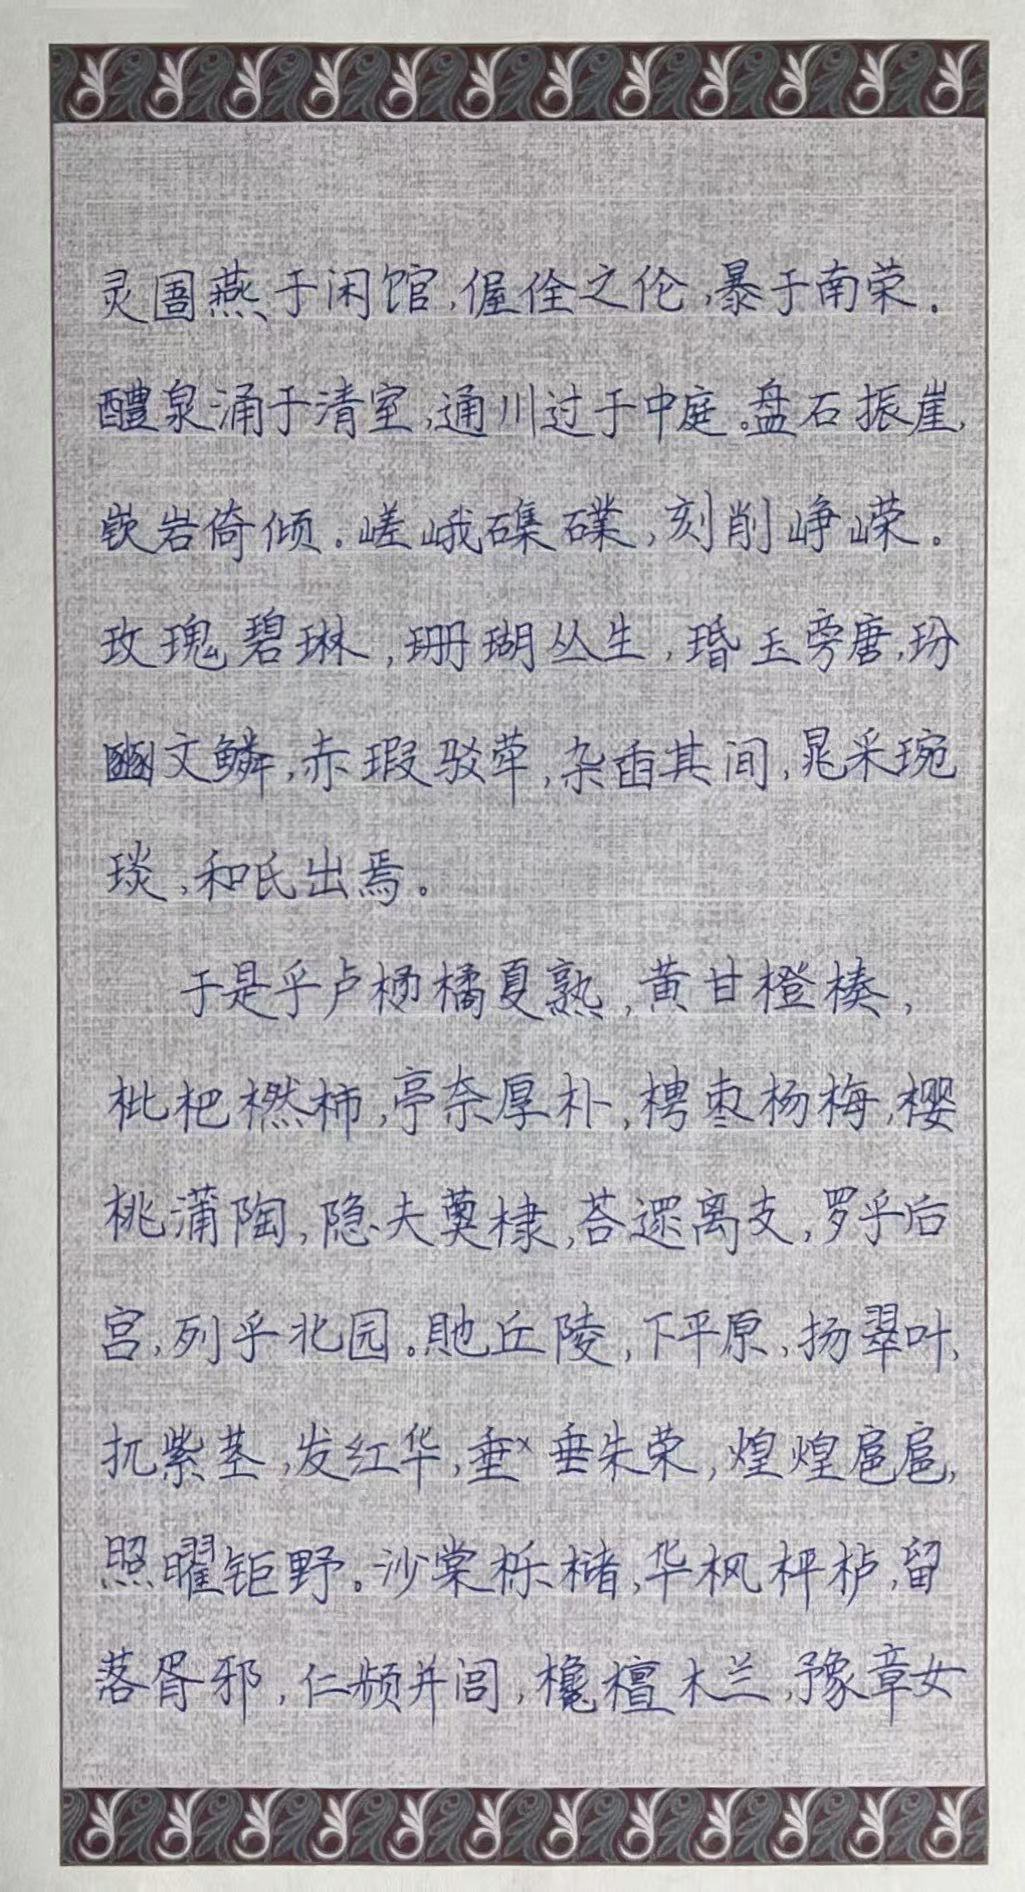 灵圄燕于闲馆,偓佺之伦,暴于南荣.
醴泉涌于清室,通川过于中庭。盘石振崖,
嵚岩倚倾.嵯峨磼礏,刻削峥嵘.
玫瑰碧琳,珊瑚丛生,瑉玉旁唐,玢
豳文鳞,赤瑕驳荦,杂臿其间,晁采琬
琰,和氏出焉。
于是乎卢橘橘夏熟,黄甘橙楱,
枇杷橪柿,亭奈厚朴,梬枣杨梅,樱
桃蒲陶,隐夫薁棣,荅遝离支,罗乎后
宫,列乎北园。貤丘陵,下平原,扬翠叶,
扤紫茎,发红华,垂垂朱荣,煌煌扈扈,
照曜钜野。沙棠栎槠,华枫枰栌,留
落胥邪,仁频并闾,欃檀木兰,豫章女